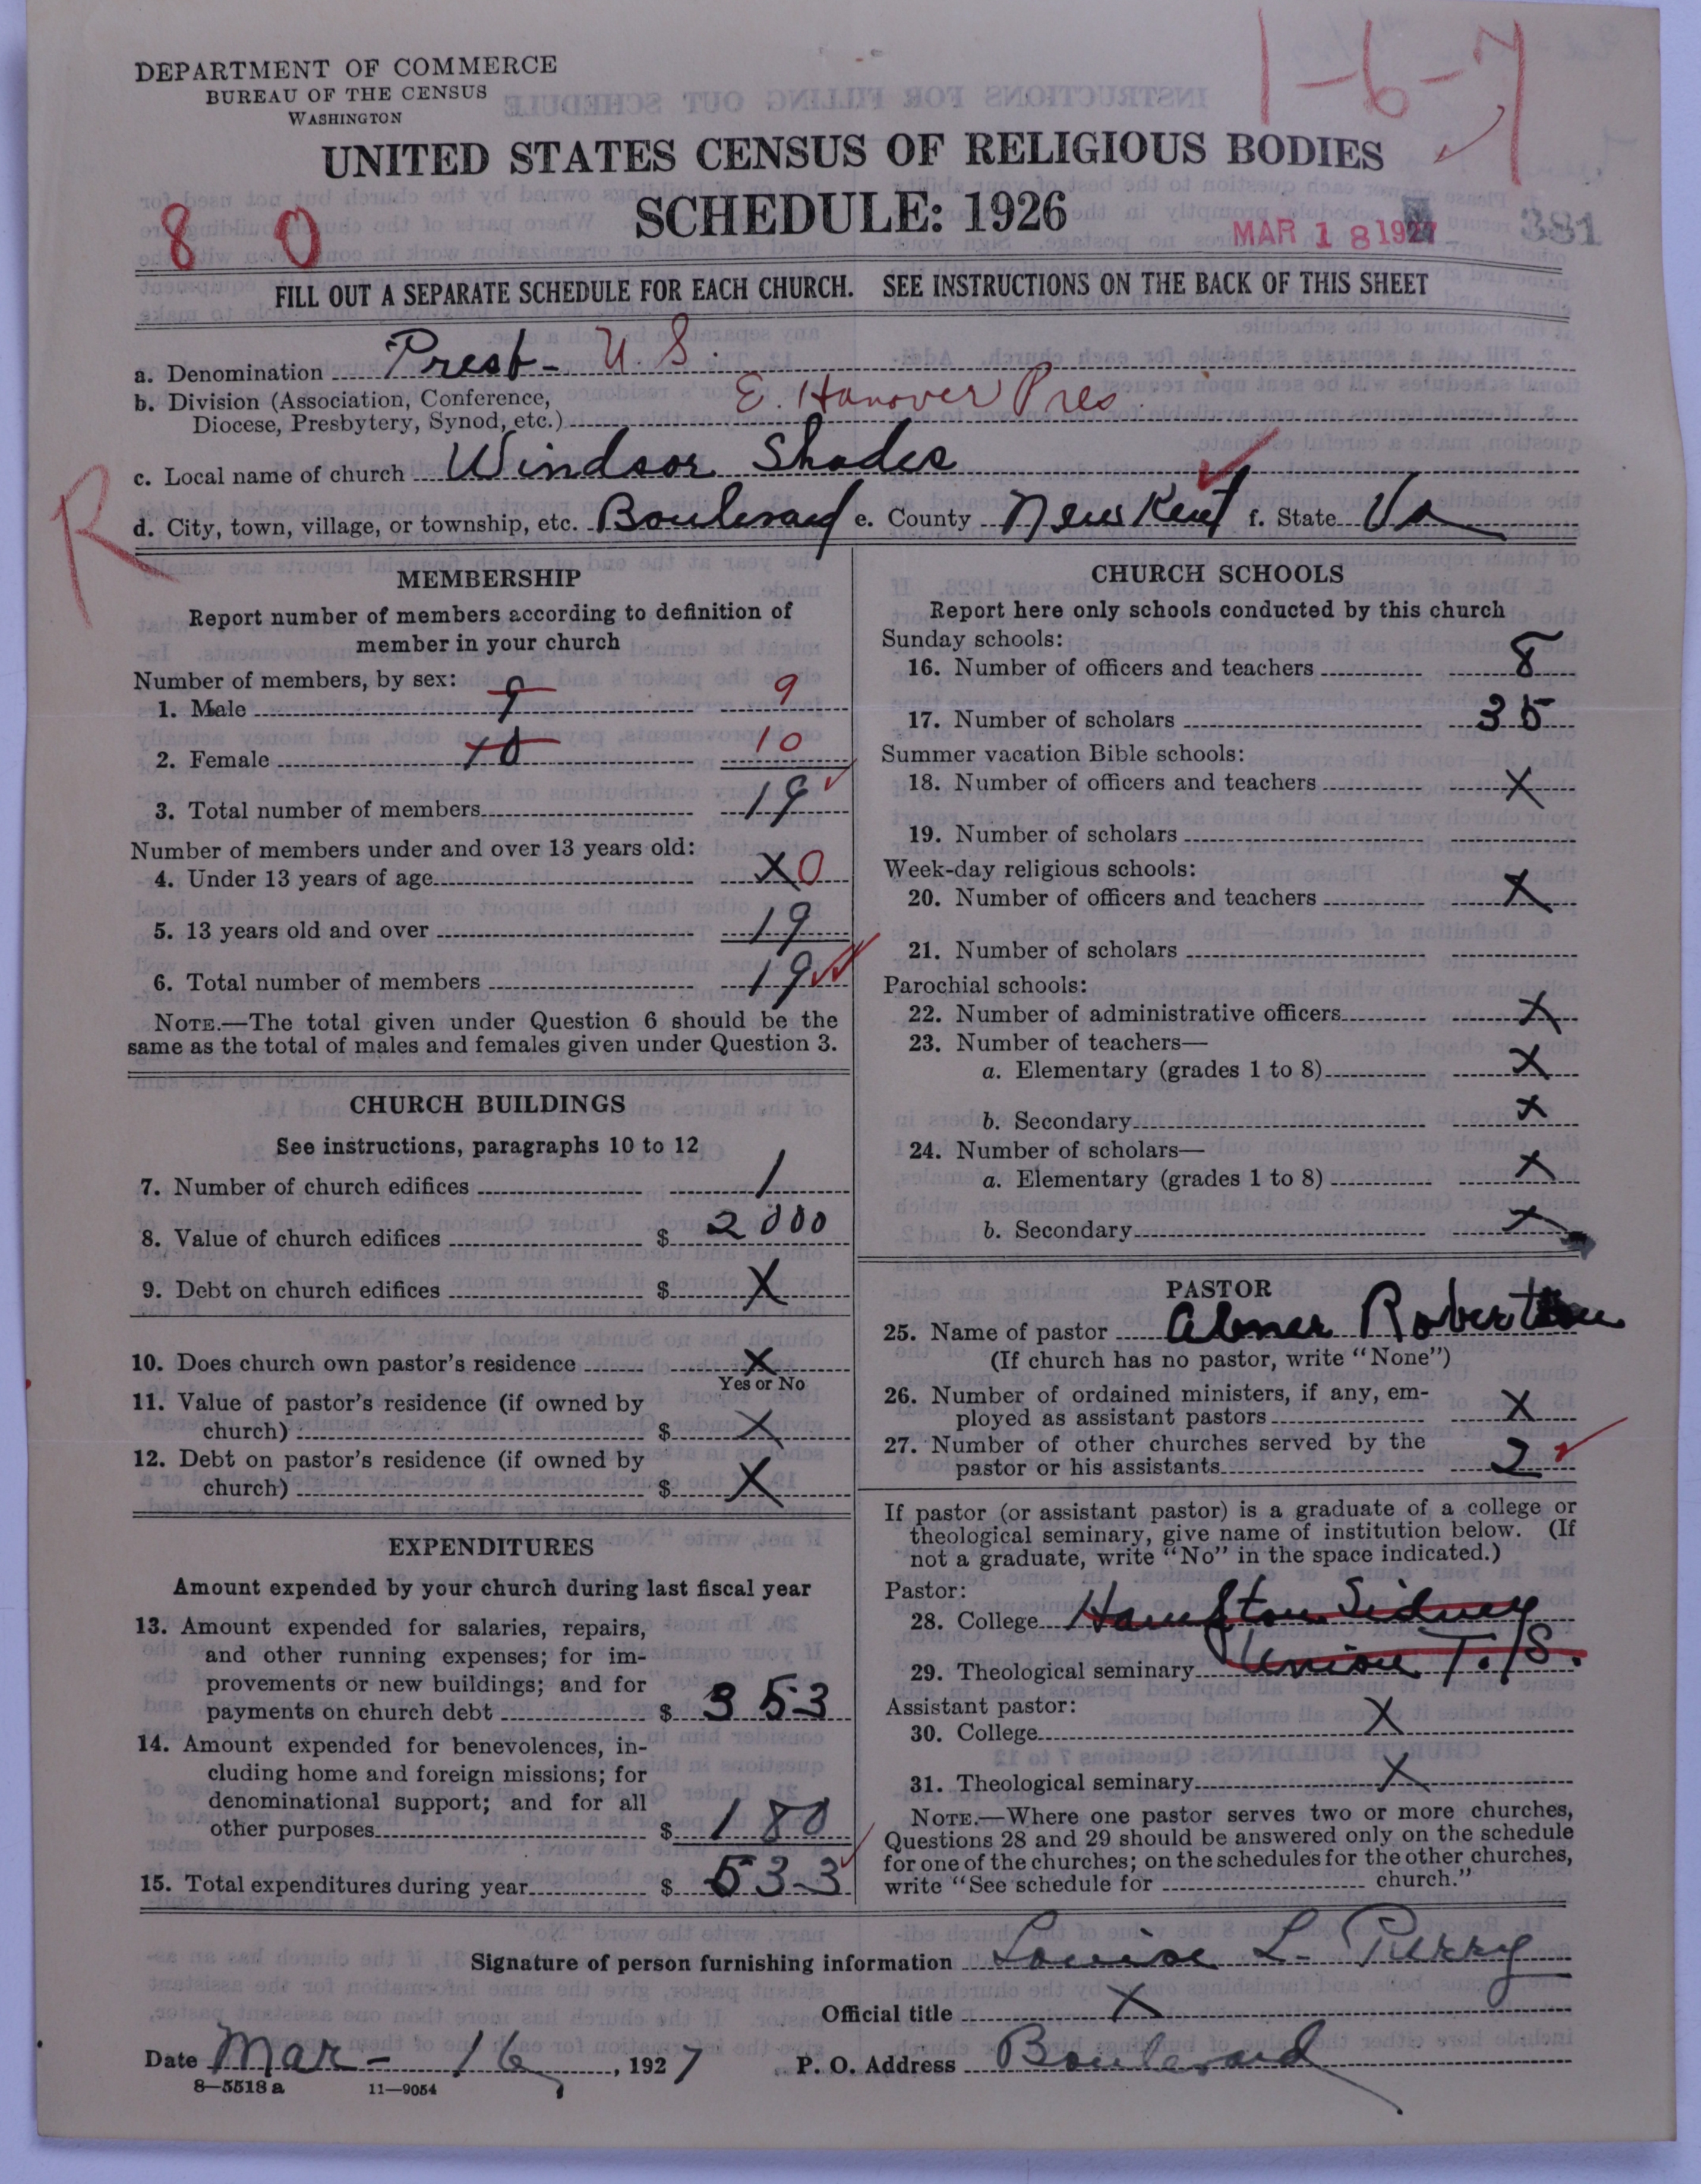 DEPARTMENT OF COMMERCE
BUREAU OF THE CENSUS
WASHINGTON
1-6-7
UNITED STATES CENSUS OF RELIGIOUS BODIES
SCHEDULE: 1926
8 0
MAR 18 1927 381
FILL OUT A SEPARATE SCHEDULE FOR EACH CHURCH. SEE INSTRUCTIONS ON THE BACK OF THIS SHEET
a. Denomination Presb- U.S.
b. Division (Association, Conference, Diocese, Presbytery, Synod, etc.) E. Hanover Pres.
c. Local name of church Windsor Shades
R
d. City, town, village, or township, etc. Boulevard e. County New Kent f. State Va
MEMBERSHIP
Report number of members according to definition of
member in your church
Number of members, by sex:
1. Male 9 9
2. Female 10 10
3. Total number of members 19
Number of members under and over 13 years old:
4. Under 13 years of age X 0
5. 13 years old and over 19
6. Total number of members 19
NOTE.—The total given under Question 6 should be the
same as the total of males and females given under Question 3.
CHURCH BUILDINGS
See instructions, paragraphs 10 to 12
7. Number of church edifices 1
8. Value of church edifices $ 2000
9. Debt on church edifices $ X
10. Does church own pastor's residence X
Yes or No
11. Value of pastor's residence (if owned by
church) $ X
12. Debt on pastor's residence (if owned by
church) $ X
EXPENDITURES
Amount expended by your church during last fiscal year
13. Amount expended for salaries, repairs,
and other running expenses; for im-
provements or new buildings; and for
payments on church debt $ 353
14. Amount expended for benevolences, in-
cluding home and foreign missions; for
denominational support; and for all
other purposes $ 180
15. Total expenditures during year $ 533
CHURCH SCHOOLS
Report here only schools conducted by this church
Sunday schools:
16. Number of officers and teachers 8
17. Number of scholars 35
Summer vacation Bible schools:
18. Number of officers and teachers X
19. Number of scholars
Week-day religious schools:
20. Number of officers and teachers X
21. Number of scholars
Parochial schools:
22. Number of administrative officers X
23. Number of teachers—
a. Elementary (grades 1 to 8) X
b. Secondary X
24. Number of scholars—
a. Elementary (grades 1 to 8) X
b. Secondary X
PASTOR
25. Name of pastor Abner Robertson
(If church has no pastor, write "None")
26. Number of ordained ministers, if any, em-
ployed as assistant pastors X
27. Number of other churches served by the
pastor or his assistants 2
If pastor (or assistant pastor) is a graduate of a college or
theological seminary, give name of institution below. (If
not a graduate, write "No" in the space indicated.)
Pastor:
28. College Hampton Sidney
29. Theological seminary Union T. S.
Assistant pastor:
30. College X
31. Theological seminary X
NOTE.—Where one pastor serves two or more churches,
Questions 28 and 29 should be answered only on the schedule
for one of the churches; on the schedules for the other churches,
write "See schedule for church."
Signature of person furnishing information Louise L. Perry
Official title X
Date Mar- 16, 1927 P. O. Address Boulevard
8—5518 a 11—9054